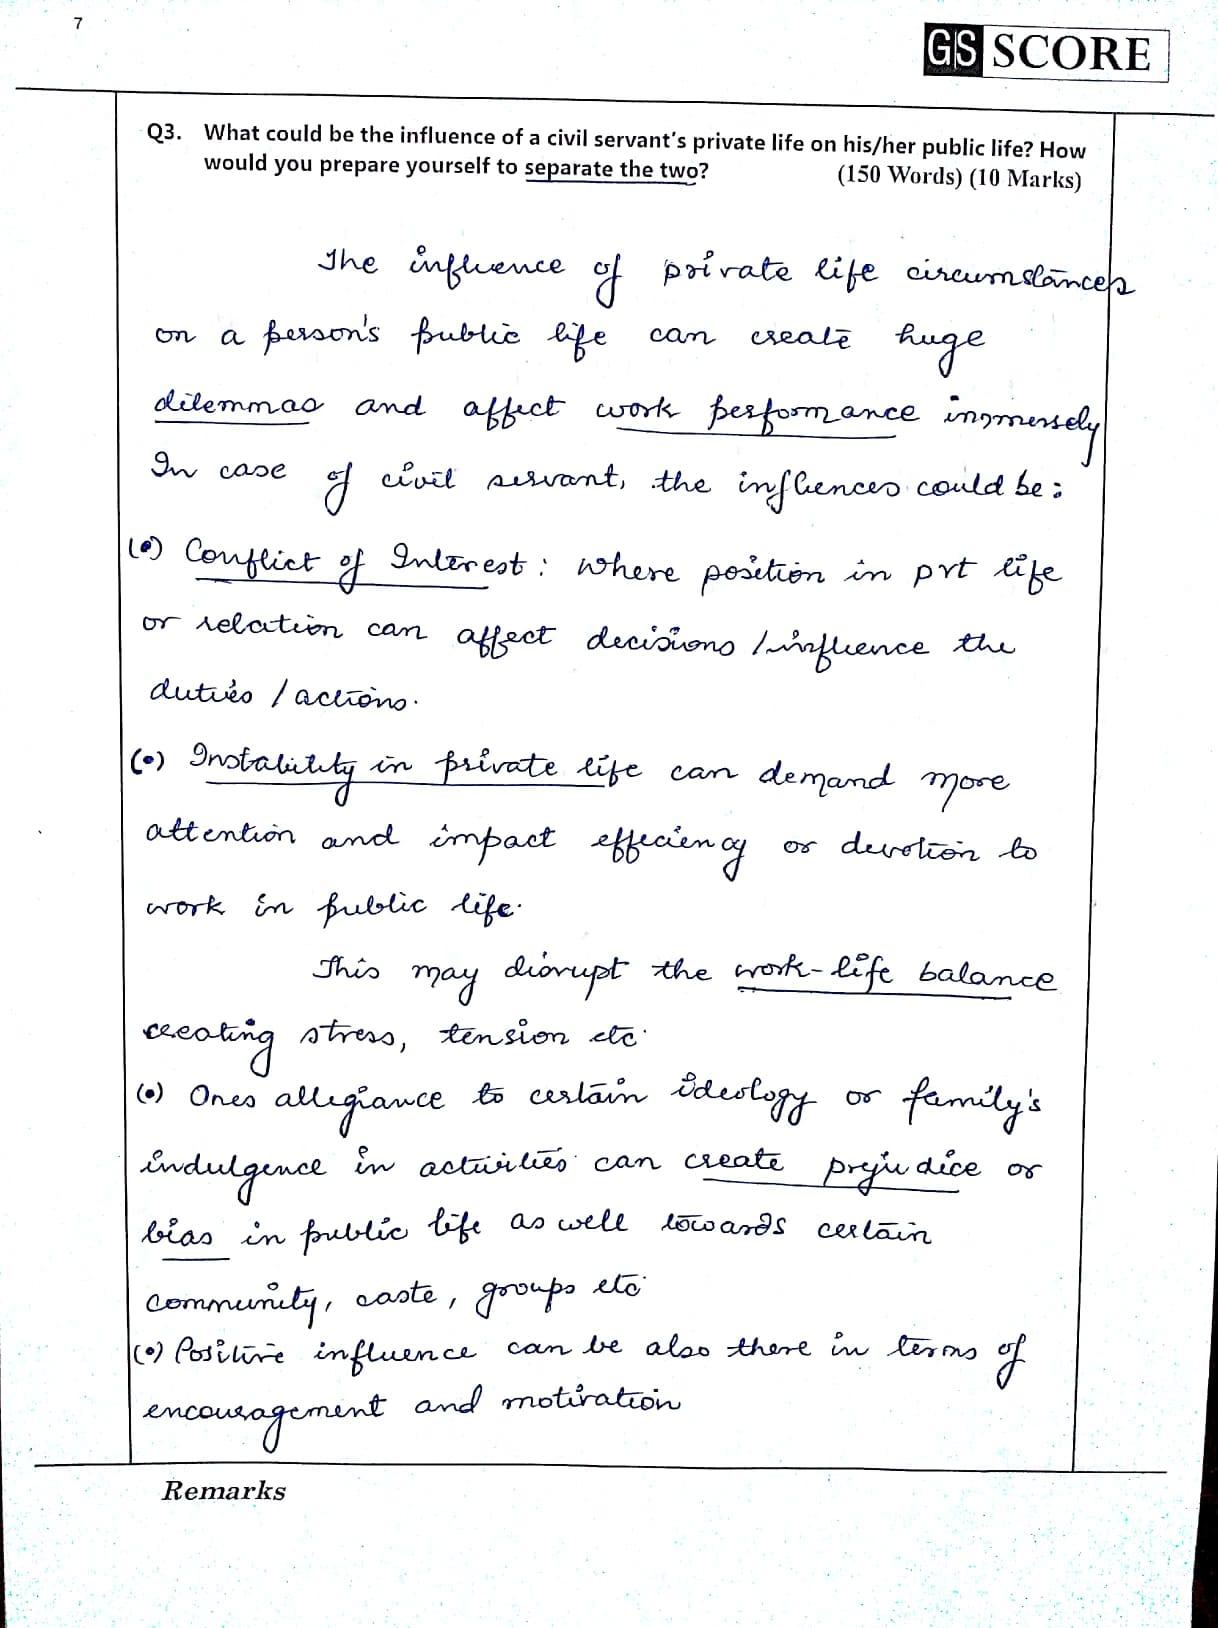 7
GS SCORE
Q3. What could be the influence of a civil servant's private life on his/her public life? How
would you prepare yourself to separate the two? (150 Words) (10 Marks)
The influence of private life circumstances
on a person's public life can create huge
dilemmas and affect work performance immersely
In case of civil servant, the influences could be:
(•) Conflict of Interest: where position in prt life
or relation can affect decisions / influence the
duties / actions.
(•) Instability in private life can demand more
attention and impact effeciency or devotion to
work in public life.
This may disrupt the work-life balance
creating stress, tension etc.
(•) Ones allegiance to certain ideology or family's
indulgence in activities can create prejudice or
bias in public life as well towards certain
community, caste, groups etc.
(•) Positive influence can be also there in terms of
encouragement and motivation
Remarks